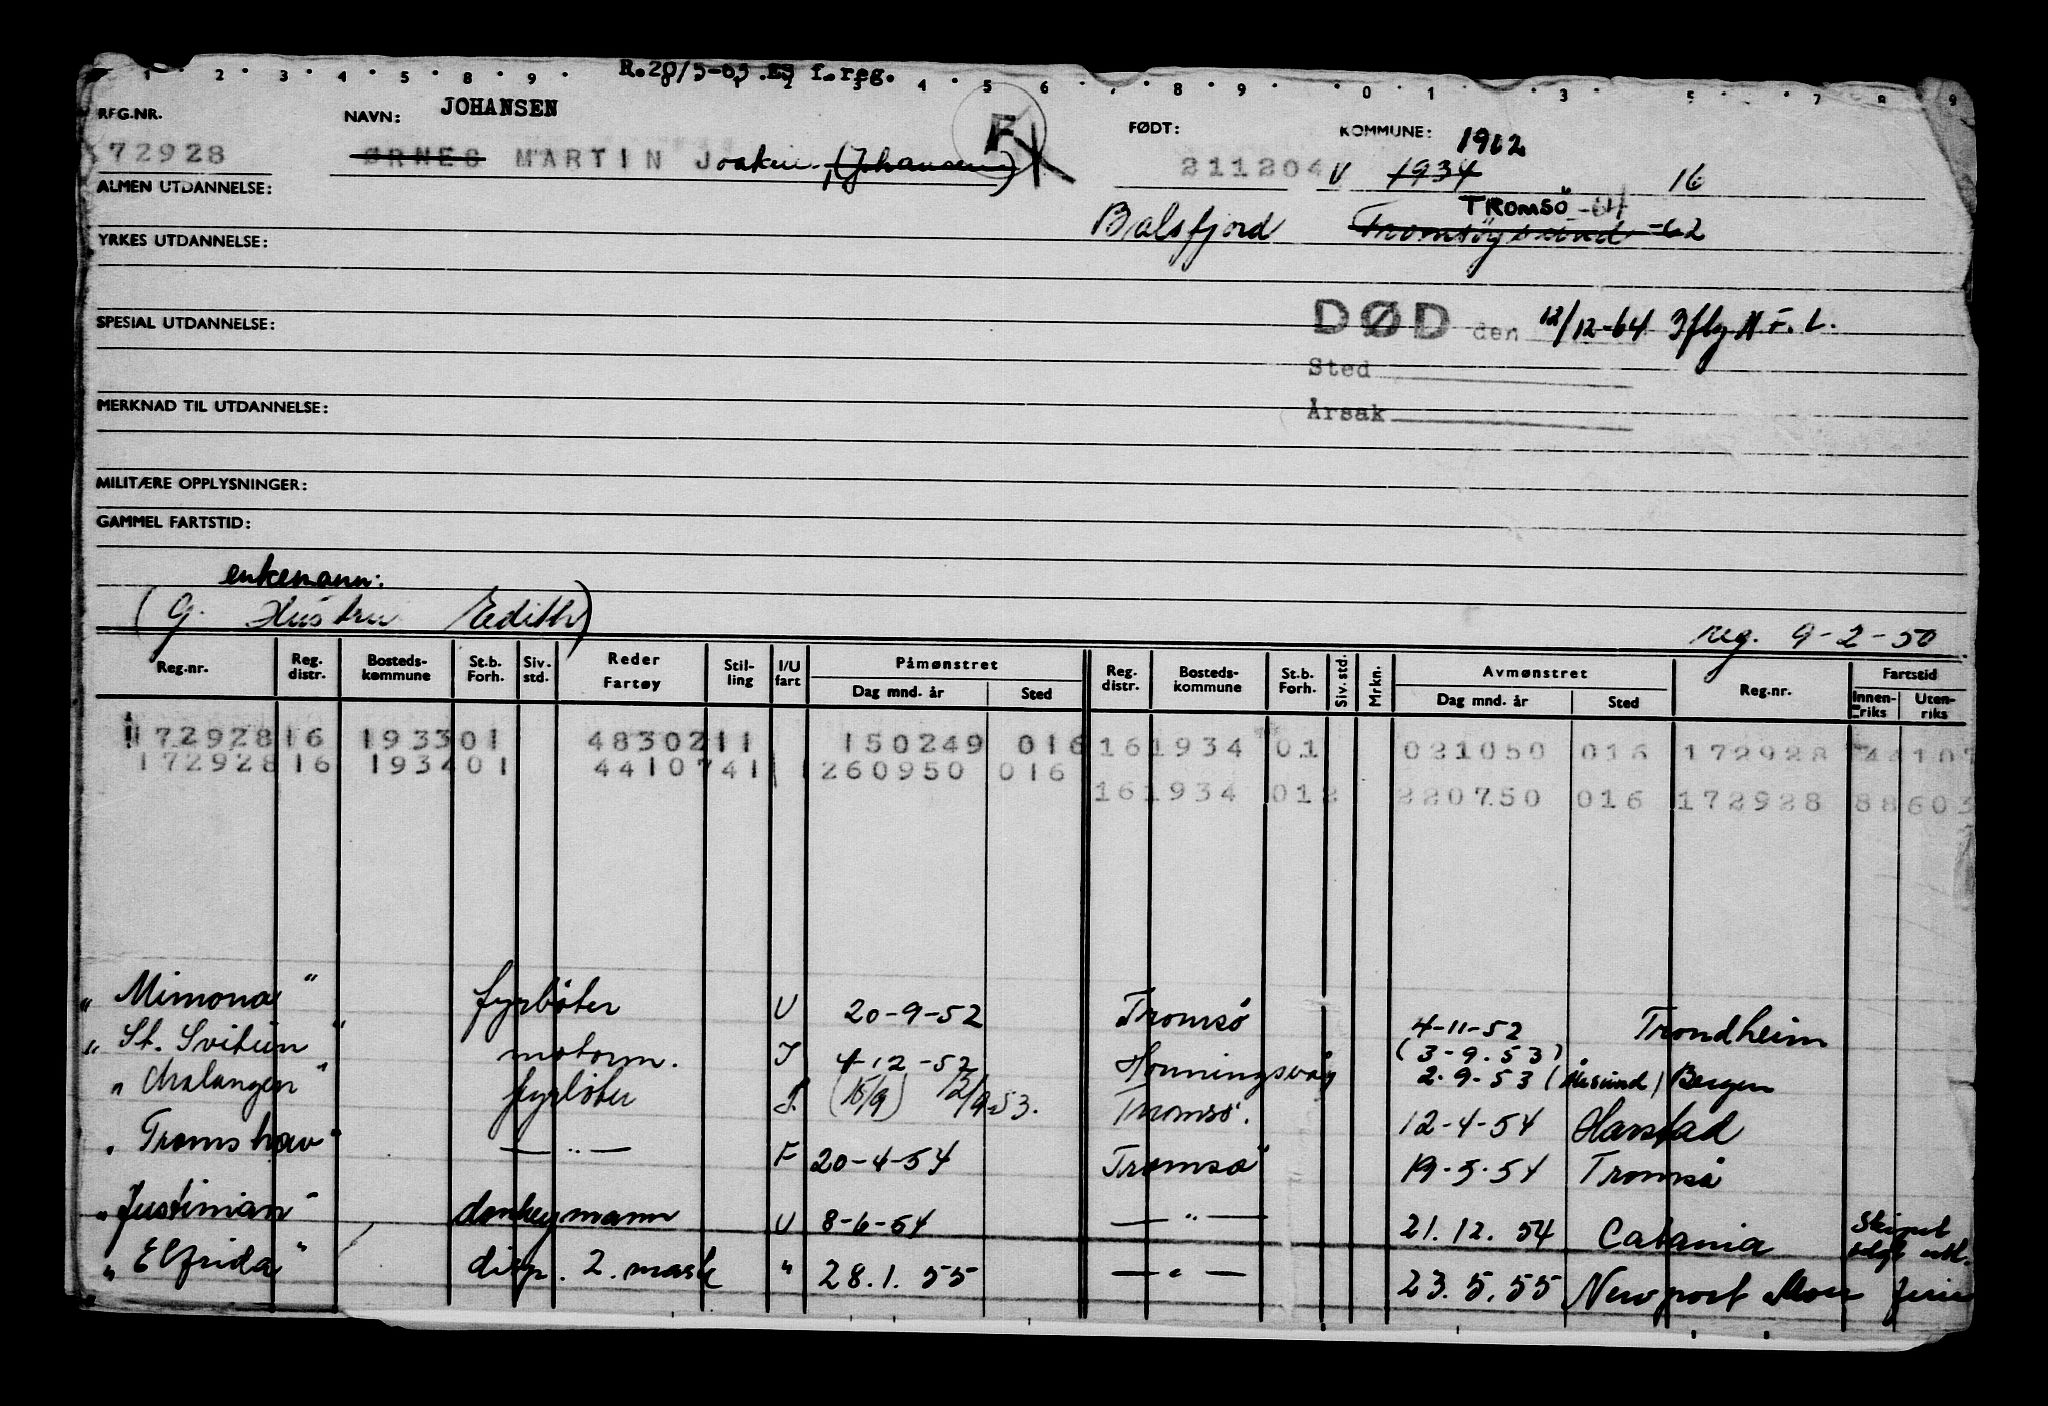 1 · 2 · 3 · 4 · 5 · 8 · 9 · R.20/5-65 ES f.reg. 2 3 4 · 5 · 6 · 8 · 9 · 0 · 1 · 3 · 5 · 7 8 9
REG.NR. NAVN: JOHANSEN F FØDT: KOMMUNE: 1902
72928 ØRNES MARTIN Joakim, (Johansen) 211204 V 1934 16
ALMEN UTDANNELSE: TROMSÖ -64
Balsfjord Tromsøysund -62
YRKES UTDANNELSE:
SPESIAL UTDANNELSE: DØD den 12/12-64 Iflg A F. L.
Sted
MERKNAD TIL UTDANNELSE: Årsak
MILITÆRE OPPLYSNINGER:
GAMMEL FARTSTID:
enkemann:
(G. Hustru Edith) reg. 9-2-50
Reg.nr. Reg. distr. Bosteds- kommune St.b. Forh. Siv. std. Reder Fartøy Stil- ling I/U fart Påmønstret Dag mnd. år Sted Reg. distr. Bosteds- kommune St.b. Forh. Siv. std. Mrkn. Avmønstret Dag mnd. år Sted Reg.nr. Fartstid Innen- riks Uten- riks
172928 16 1933 01 4830211 150249 016 16 1934 01 021050 016 172928 44107
172928 16 1934 01 4410741 1 260950 016
16 1934 012 220750 016 172928 88603
"Mimona" fyrbøter U 20-9-52 Tromsö 4-11-52 Trondheim
"St. Svitun" motorm. I 4-12-52 Honningsvåg (3-9.53) 2.9.53 (Ålesund) Bergen
"Malangen" fyrbøter I. (15/9) 12/9-53. Tromsö. 12-4-54 Harstad
"Tromshav" — " — F 20-4-54 Tromsö 19-5-54 Tromsö
"Justinian" donkeymann U 8-6-54 — " — 21.12.54 Catania Skipet solgt utl.
"Elfrida" disp. 2. mask " 28.1.55 — " — 23.5.55 Newport Mon ferie